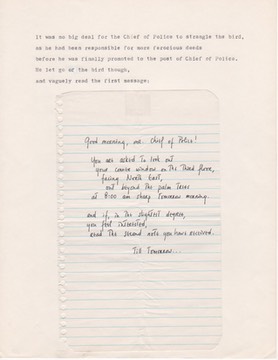 It was no big deal for the Chief of Police to strangle the bird,
as he had been responsible for more ferocious deeds
before he was finally promoted to the post of Chief of Police.
He let go of the bird though,
and vaguely read the first message:
Good morning, our Chief of Police!
You are asked to look out
your window on the third floor,
facing North East,
out beyond the palm trees
at 8:00 am sharp tomorrow morning.
and if, in the slightest degree,
you feel interested,
read the second note you have received.
Till tomorrow...